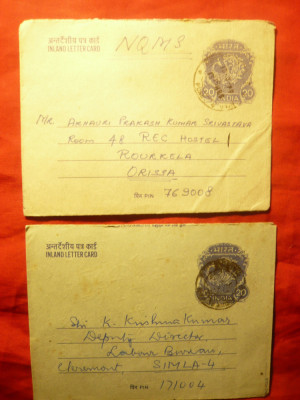 अन्तर्देशीय पत्र कार्ड
INLAND LETTER CARD
NQMS
भारत
20 20
INDIA
MR AKHAURI PRAKASH KUMAR SRIVASTAVA
ROOM 48 REC HOSTEL 1
ROURKELA
ORISSA
पिन PIN 769008
अन्तर्देशीय पत्र कार्ड
INLAND LETTER CARD
भारत
20
INDIA
Sri K. Krishna Kumar
Deputy Director
Labour Bureau,
Claremont SIMLA-4
पिन PIN 171004